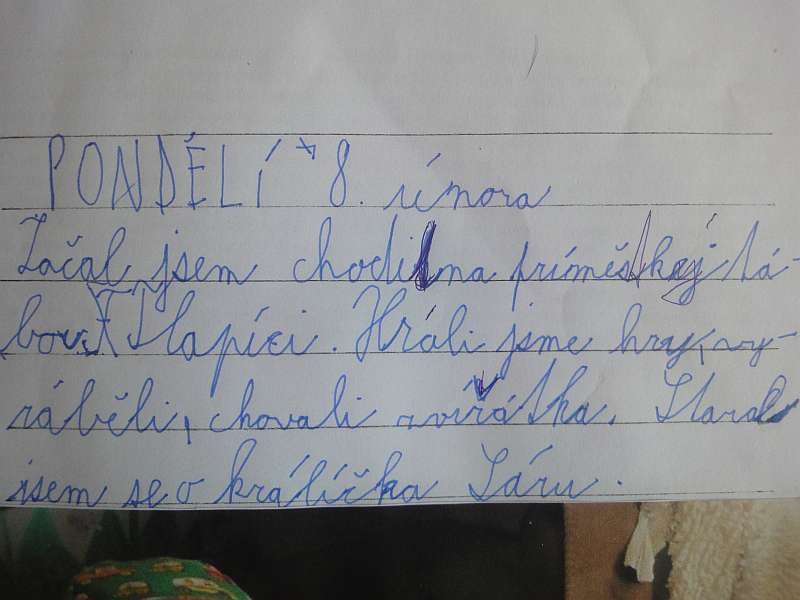 PONDĚLÍ 8. února
Začal jsem chodit na příměstský tá-
bor Tlapíci. Hráli jsme hry, vy-
ráběli, chovali zvířátka. Staral
jsem se o králíčka Sáru.